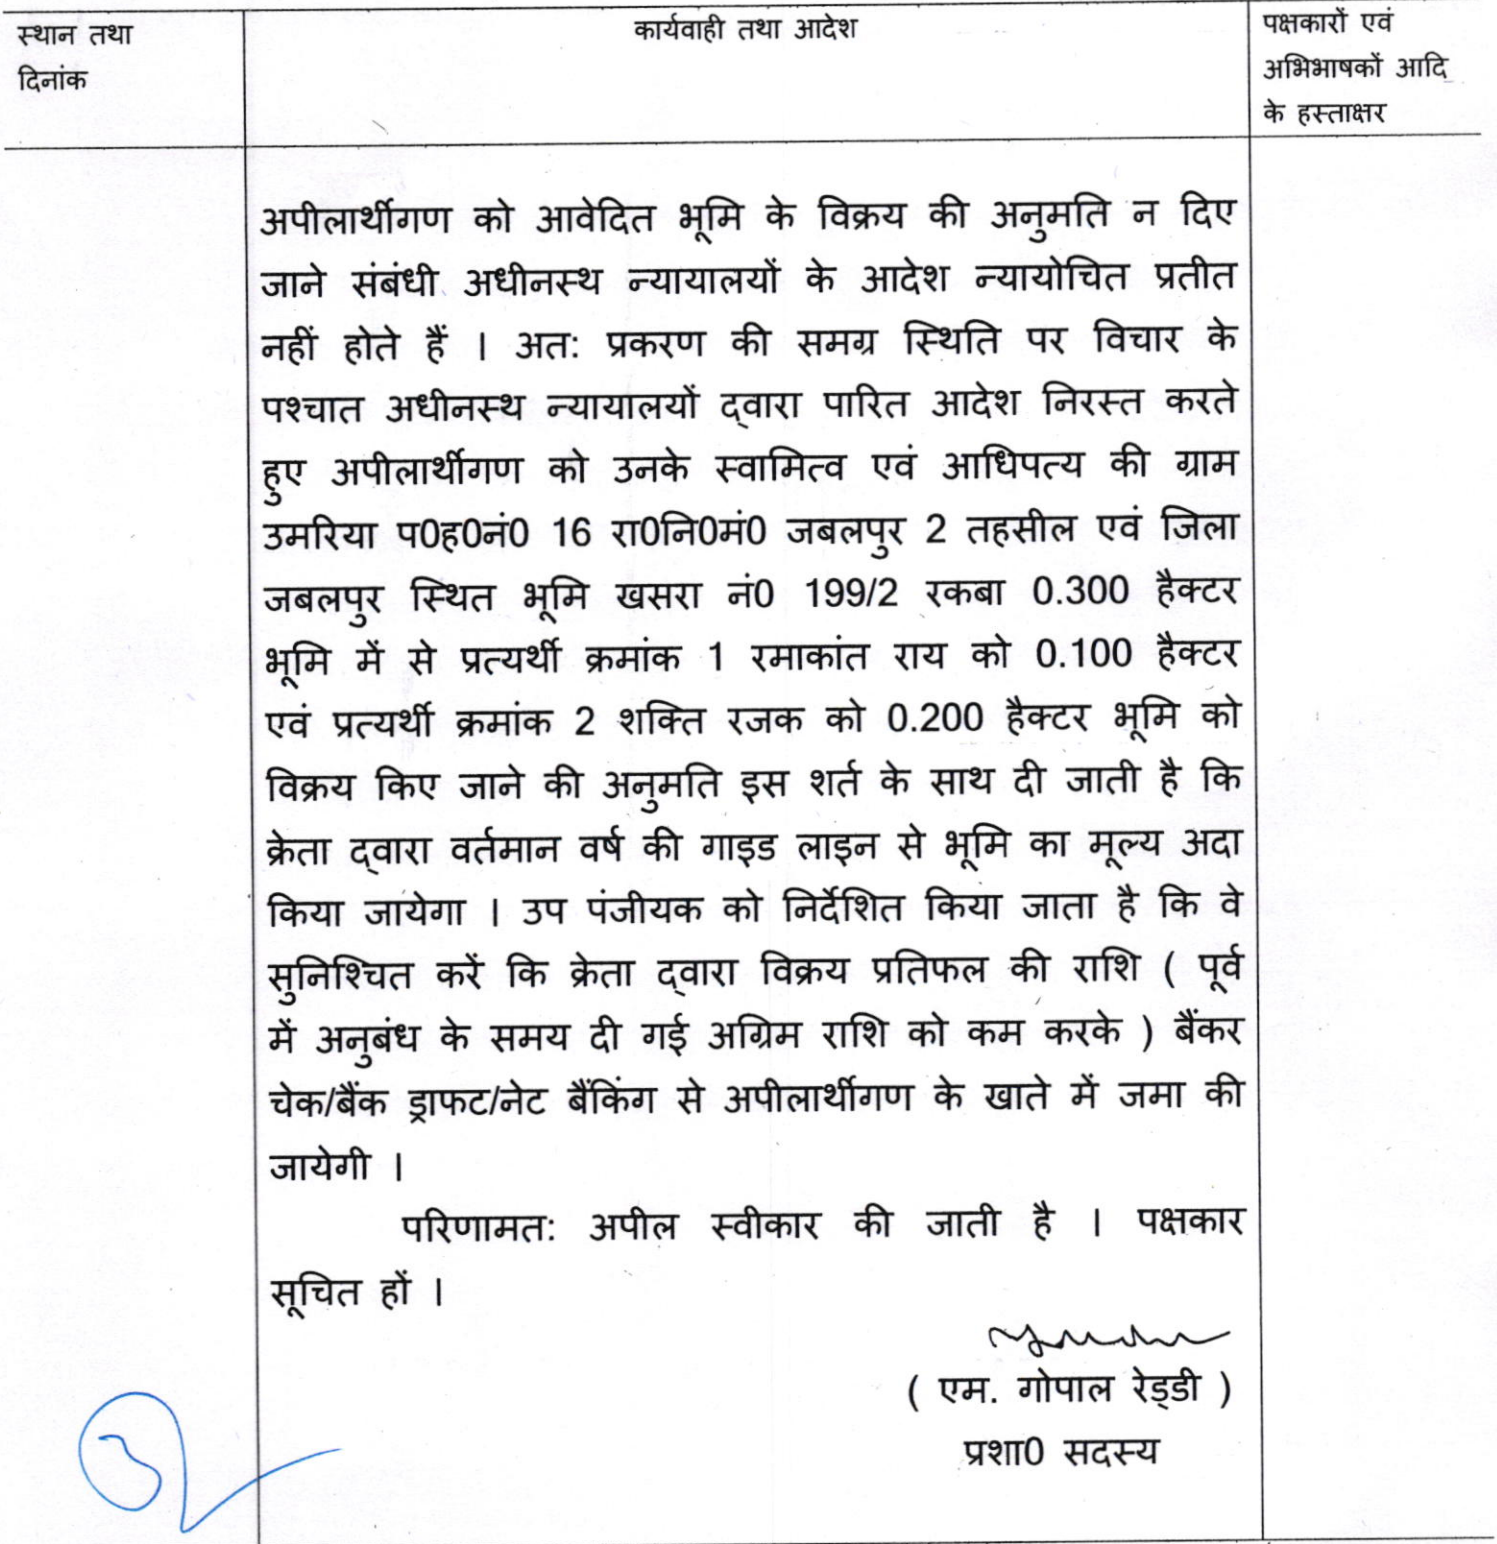 स्थान तथा
दिनांक
कार्यवाही तथा आदेश
पक्षकारों एवं
अभिभाषकों आदि
के हस्ताक्षर
अपीलार्थीगण को आवेदित भूमि के विक्रय की अनुमति न दिए
जाने संबंधी अधीनस्थ न्यायालयों के आदेश न्यायोचित प्रतीत
नहीं होते हैं । अत: प्रकरण की समग्र स्थिति पर विचार के
पश्चात अधीनस्थ न्यायालयों द्वारा पारित आदेश निरस्त करते
हुए अपीलार्थीगण को उनके स्वामित्व एवं आधिपत्य की ग्राम
उमरिया प0ह0नं0 16 रा0नि0मं0 जबलपुर 2 तहसील एवं जिला
जबलपुर स्थित भूमि खसरा नं0 199/2 रकबा 0.300 हैक्टर
भूमि में से प्रत्यर्थी क्रमांक 1 रमाकांत राय को 0.100 हैक्टर
एवं प्रत्यर्थी क्रमांक 2 शक्ति रजक को 0.200 हैक्टर भूमि को
विक्रय किए जाने की अनुमति इस शर्त के साथ दी जाती है कि
क्रेता द्वारा वर्तमान वर्ष की गाइड लाइन से भूमि का मूल्य अदा
किया जायेगा । उप पंजीयक को निर्देशित किया जाता है कि वे
सुनिश्चित करें कि क्रेता द्वारा विक्रय प्रतिफल की राशि ( पूर्व
में अनुबंध के समय दी गई अग्रिम राशि को कम करके ) बैंकर
चेक/बैंक ड्राफट/नेट बैंकिंग से अपीलार्थीगण के खाते में जमा की
जायेगी ।
परिणामत: अपील स्वीकार की जाती है । पक्षकार
सूचित हों ।
( एम. गोपाल रेड्डी )
प्रशा0 सदस्य